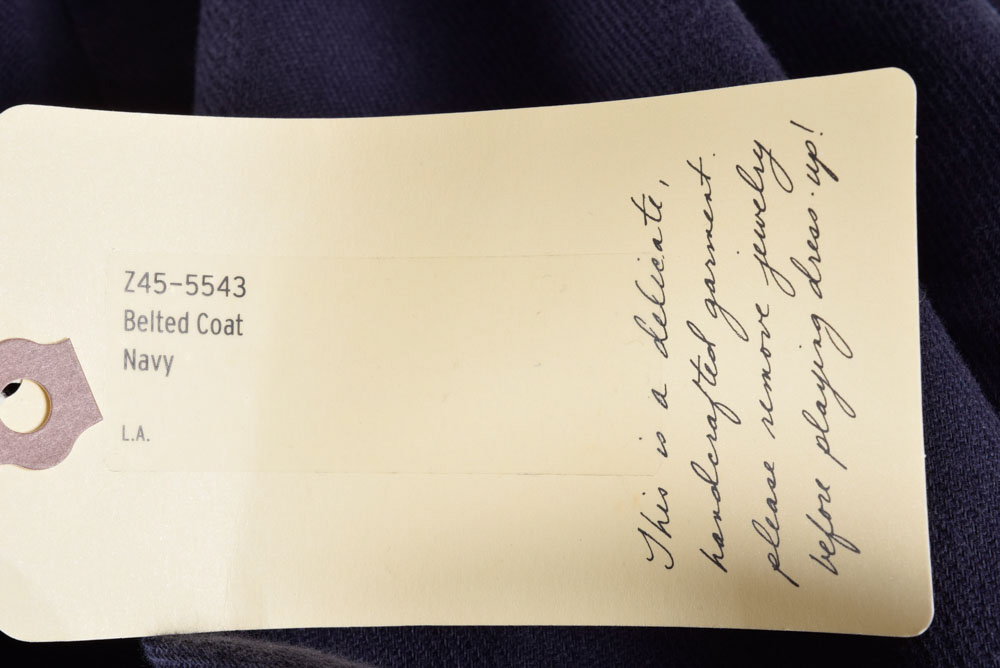 Z45-5543
Belted Coat
Navy
L.A.
This is a delicate,
handcrafted garment.
please remove jewelry
before playing dress-up!